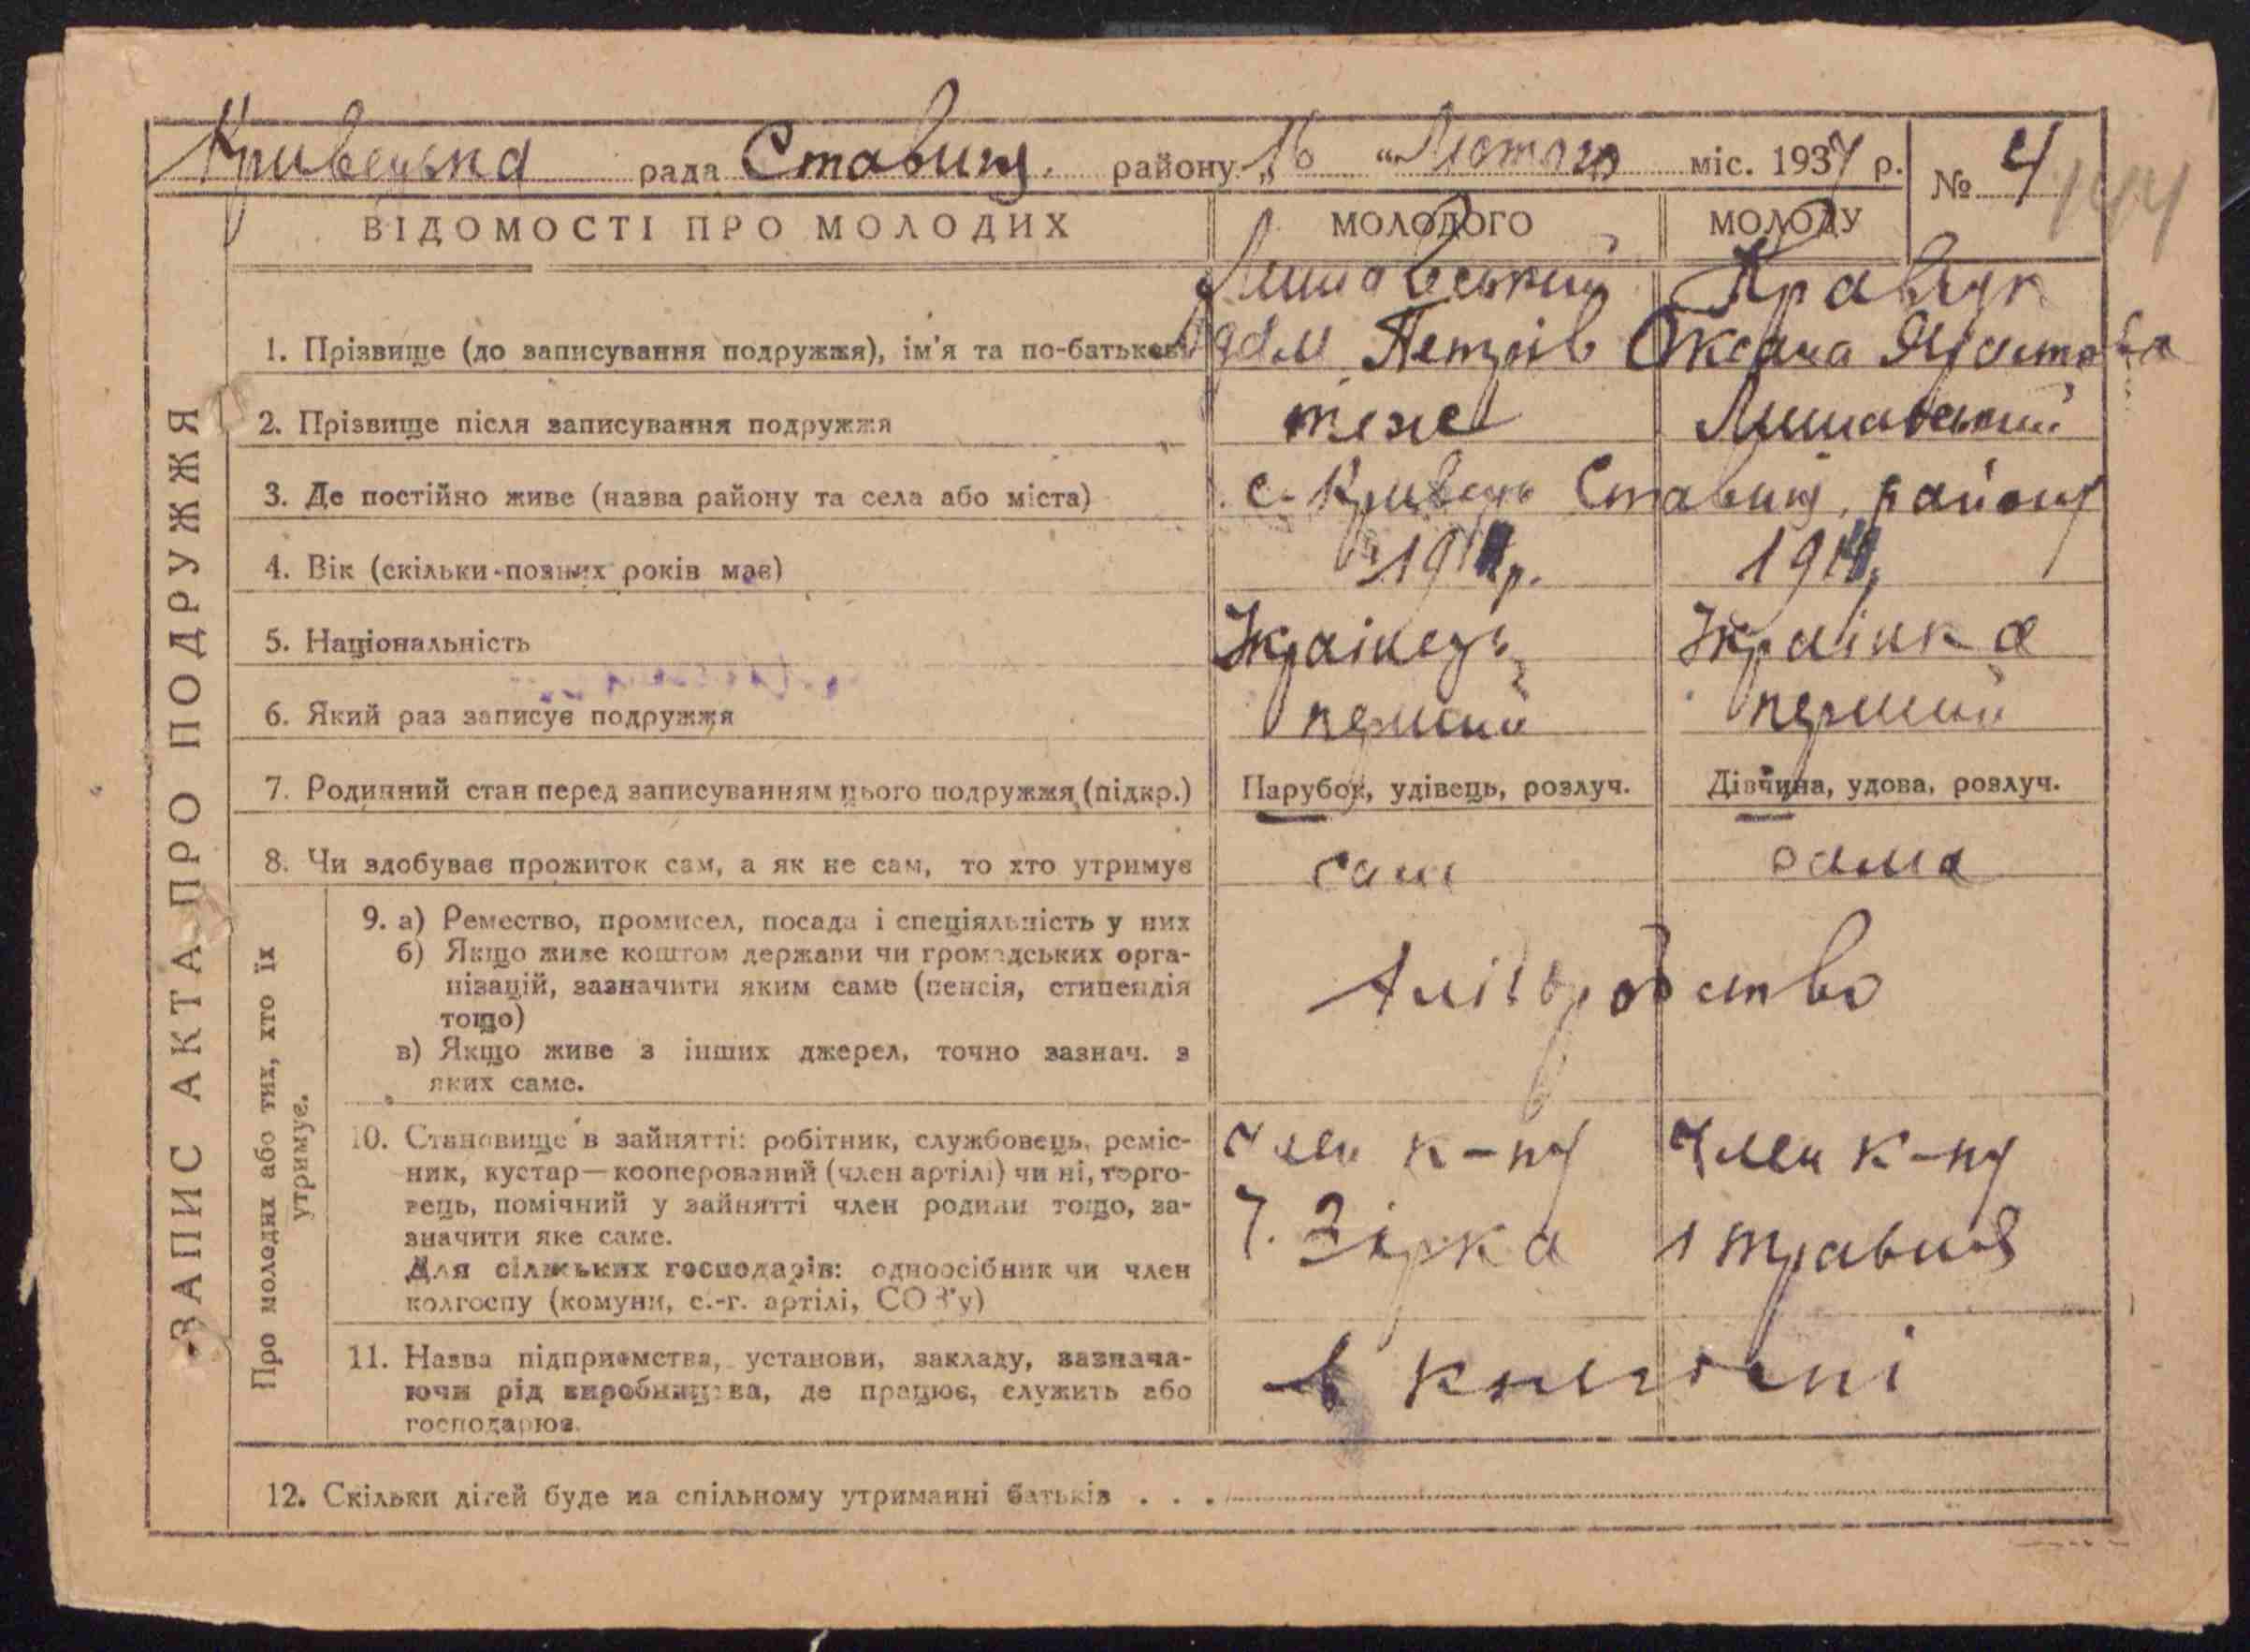 Кривецька рада Ставищ. району „16 “ Лютого міс. 1937 р. № 4
144
ЗАПИС АКТА ПРО ПОДРУЖЖЯ
ВІДОМОСТІ ПРО МОЛОДИХ МОЛОДОГО МОЛОДУ
Лишавський Кравчук
1. Прізвище (до записування подружжя), ім'я та по-батькові Адам Петрів Оксана
2. Прізвище після записування подружжя теже Лишавський
3. Де постійно живе (назва району та села або міста) с. Кривець Ставищ. району
4. Вік (скільки повних років має)
5. Національність Українець Українка
6. Який раз записує подружжя перший перший
7. Родинний стан перед записуванням цього подружжя (підкр.) Парубок, удівець, розлуч. Дівчина, удова, розлуч.
8. Чи здобуває прожиток сам, а як не сам, то хто утримує сам сама
Про молодих або тих, хто їх утримує.
9. а) Ремество, промисел, посада і спеціяльність у них
б) Якщо живе коштом держави чи громадських орга-
нізацій, зазначити яким саме (пенсія, стипендія
тощо)
в) Якщо живе з інших джерел, точно зазнач. з
яких саме.
10. Становище в зайнятті: робітник, службовець, реміс- Член к-пу Член к-пу
ник, кустар—кооперований (член артілі) чи ні, торго-
вець, помічний у зайнятті член родини тощо, за- Ч. Зірка 1 травня
значити яке саме.
Для сільських господарів: одноосібник чи член
колгоспу (комуни, с.-г. артілі, СОЗ'у)
11. Назва підприємства, установи, закладу, зазнача- в колгоспі
ючи рід виробництва, де працює, служить або
господарює.
12. Скільки дітей буде на спільному утриманні батьків . . .